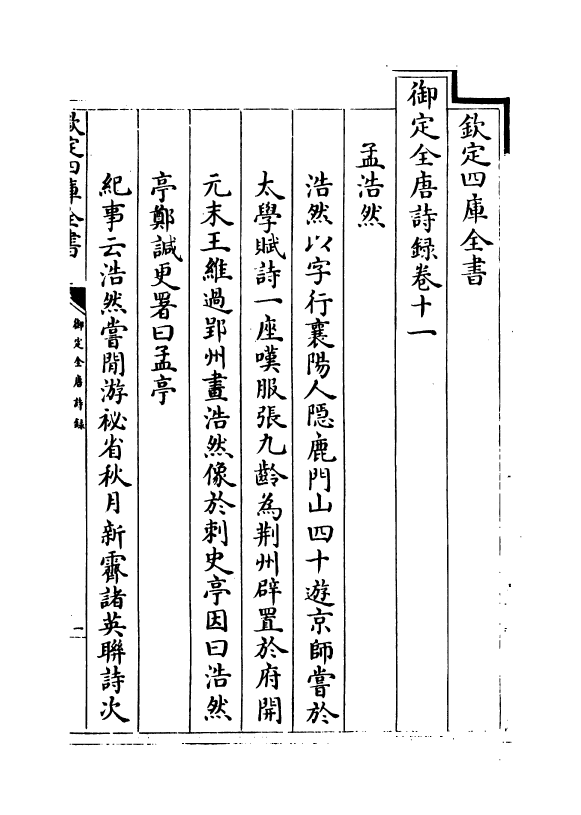 欽定四庫全書
御定全唐詩録卷十一
孟浩然
浩然以字行襄陽人隠鹿門山四十遊京師嘗於
太學賦詩一座嘆服張九齡為荆州辟置於府開
元末王維過郢州畫浩然像於刺史亭因曰浩然
亭鄭諴更署曰孟亭
紀事云浩然嘗閒游祕省秋月新霽諸英聯詩次
欽定四庫全書
御定全唐詩録
一